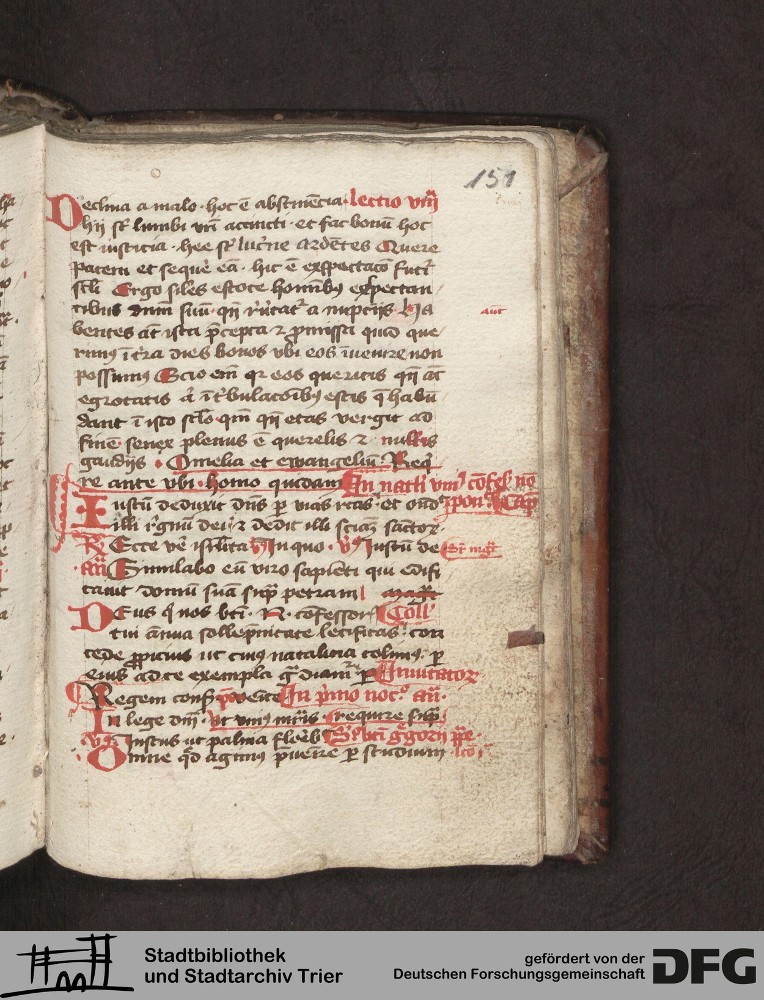 151
Declina a malo · hoc ē abstinēcia · lectio viij
hij st̄ lumbi vr̄i accincti · et fac bonū hoc
est iusticia · hee st̄ lucr̄ne ardētes Quere
pacem et seqr̄e eā · hic ē exspectaco futr̄i
scl̄i Ergo siles estote hominibꝫ expectan
tibus dnm̄ suū · qn̄ r̄utatr̄ a nupcijs · Ha
bentes aūt ista p̄cepta ⁊ promissa quid que
rimꝫ ī tr̄a dies bonos vbi eos īuenire non
possumꝫ Scio em̄ qr eos queritis qn̄ aūt
egrotatis aūt ī tribulacoībꝫ estis q̄ habū
dant ī isto sclō · qm̄ qn̄ etas vergit ad
finē senex plenus ē querelis ⁊ nullis
aūt
gaudijs · Omelia et ewangeliū Req̄
re ante vbi · homo quidam In natli vniꝰ cōfes̄ nō
Iustū deduxit dn̄s p̄ vias rcās · et ond̄ · pon̄ · Cap̄
illi rʼgnū dei ⁊ dedit illi sciāꝫ sāctoꝝ ·
R̄ Ecce ve᷑ isrl̄ita In quo · Iustū de
an̄ Simulabo eū viro sapiēti qui edifi
cauit domū suā sup̄ petram
Deus q̄ nos bt̄i · N · cōfessor Coll̄
tui ānua sollēpnitate letificas · con
cede ꝓpicius ut cuiꝰ natalicia colimꝫ · p̄
eius ad te exempla gͣdiamͬ p̄ Inuitator
Regem conf̄ In p̄mo noc̄ · an̄ ·
In lege dni · ut vniꝰ mr̄is · require sup̄
Iustus ut palma floreb̄ bt̄i gͤgorij p̄pe ·
Omne qd̄ agimꝫ p̄uenire p̄ studium · lcō · i
Stadtbibliothek
und Stadtarchiv Trier
gefördert von der
Deutschen Forschungsgemeinschaft
DFG